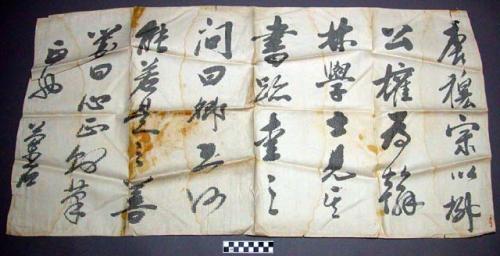 唐穆宗以柳
公權為翰
林學士見其
書跡愛之
問曰卿書何
能若是之善
對曰心正則筆
正